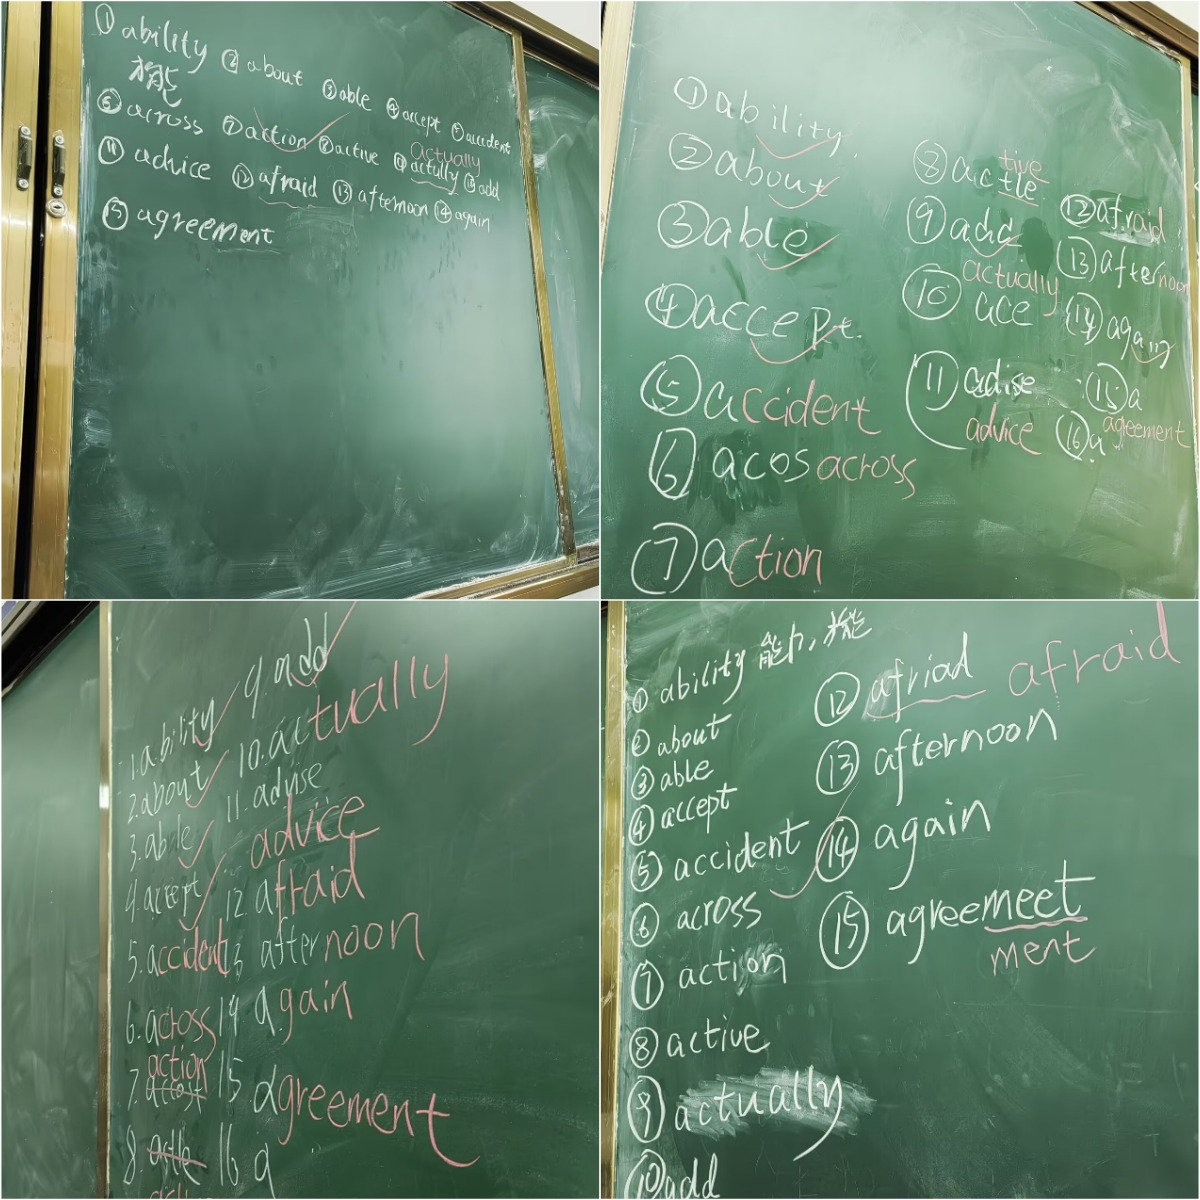 ① ability ② about ③ able ④ accept ⑤ accident
⑥ across ⑦ action ⑧ active ⑨ actully ⑩ add
actually
⑪ advice ⑫ afraid ⑬ afternoon ⑭ again
⑮ agreement
① ability
② about
③ able
④ accept.
⑤ accident
⑥ acos across
⑦ action
⑧ actle
tive
⑨ add
actually
⑩ ace
⑪ adise
advice
⑫ afraid
⑬ afternoon
⑭ again
⑮ a
agreement
⑯ a
1. ability
2. about
3. able
4. accept
5. accident
6. across
action
7.
8. actle
9. add
10. actually
11. advise
advice
12. afraid
13 afternoon
14. again
15. agreement
16 a
① ability 能力,
② about
③ able
④ accept
⑤ accident
⑥ across
⑦ action
⑧ active
⑨ actually
⑩ add
⑫ afriad afraid
⑬ afternoon
⑭ again
⑮ agreemeet
ment